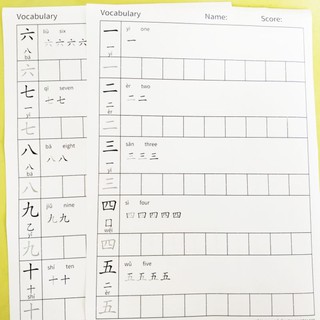 Vocabulary
六 liù six
六 六 六 六
八
bā
六
七 qī seven
七 七
一
yī
七
八 bā eight
八 八
八
bā
八
九 jiǔ nine
九 九
乙
yǐ
九
十 shí ten
十 十
十
shí
十
Vocabulary Name: Score:
一 yī one
一
一
yī
一
二 èr two
二 二
二
èr
二
三 sān three
三 三 三
一
yī
三
四 sì four
四 四 四 四 四
囗
wéi
四
五 wǔ five
五 五 五 五
二
èr
五